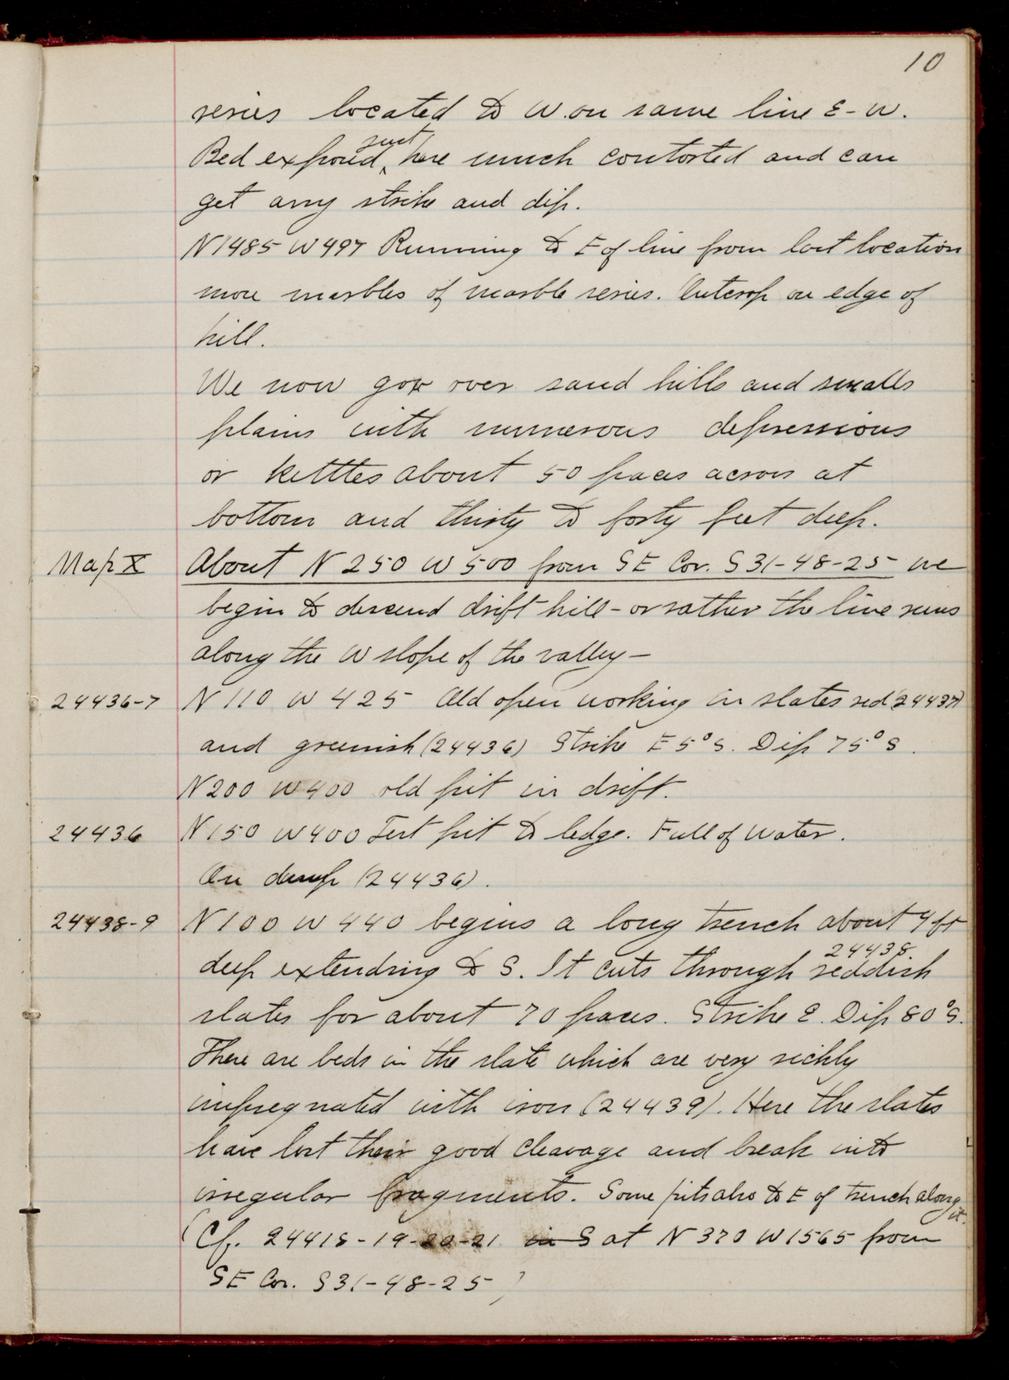 10
series located to W. on same line E-W.
Bed exposed, just here much contorted and can
get any strike and dip.
N1485 W497 Running to E of line from last location
more marbles of marble series. Outcrop on edge of
hill.
We now gox over sand hills and smalls
plains with numerous depressions
or kettles about 50 paces across at
bottom and thirty to forty feet deep.
Map X About N 250 W 500 from SE Cor. S31-48-25 we
begin to descend drift hill - or rather the line runs
along the W slope of the valley -
24436-7 N 110 W 425 Old open working in slates red (24437)
and greenish (24436) Strike E 5° S. Dip 75° S.
N200 W400 old pit in drift.
24436 N150 W400 Test pit to ledge. Full of water.
On dump (24436).
24438-9 N100 W 440 begins a long trench about 4 ft
deep extending to S. It cuts through reddish 24438.
slates for about 70 paces. Strike E. Dip 80° S.
There are beds in the slate which are very richly
impregnated with iron (24439). Here the slates
have lost their good cleavage and break into
irregular fragments. Some pits also to E of trench along it.
(Cf. 24418-19-20-21 in S at N 370 W1565 from
SE Cor. S31-48-25)